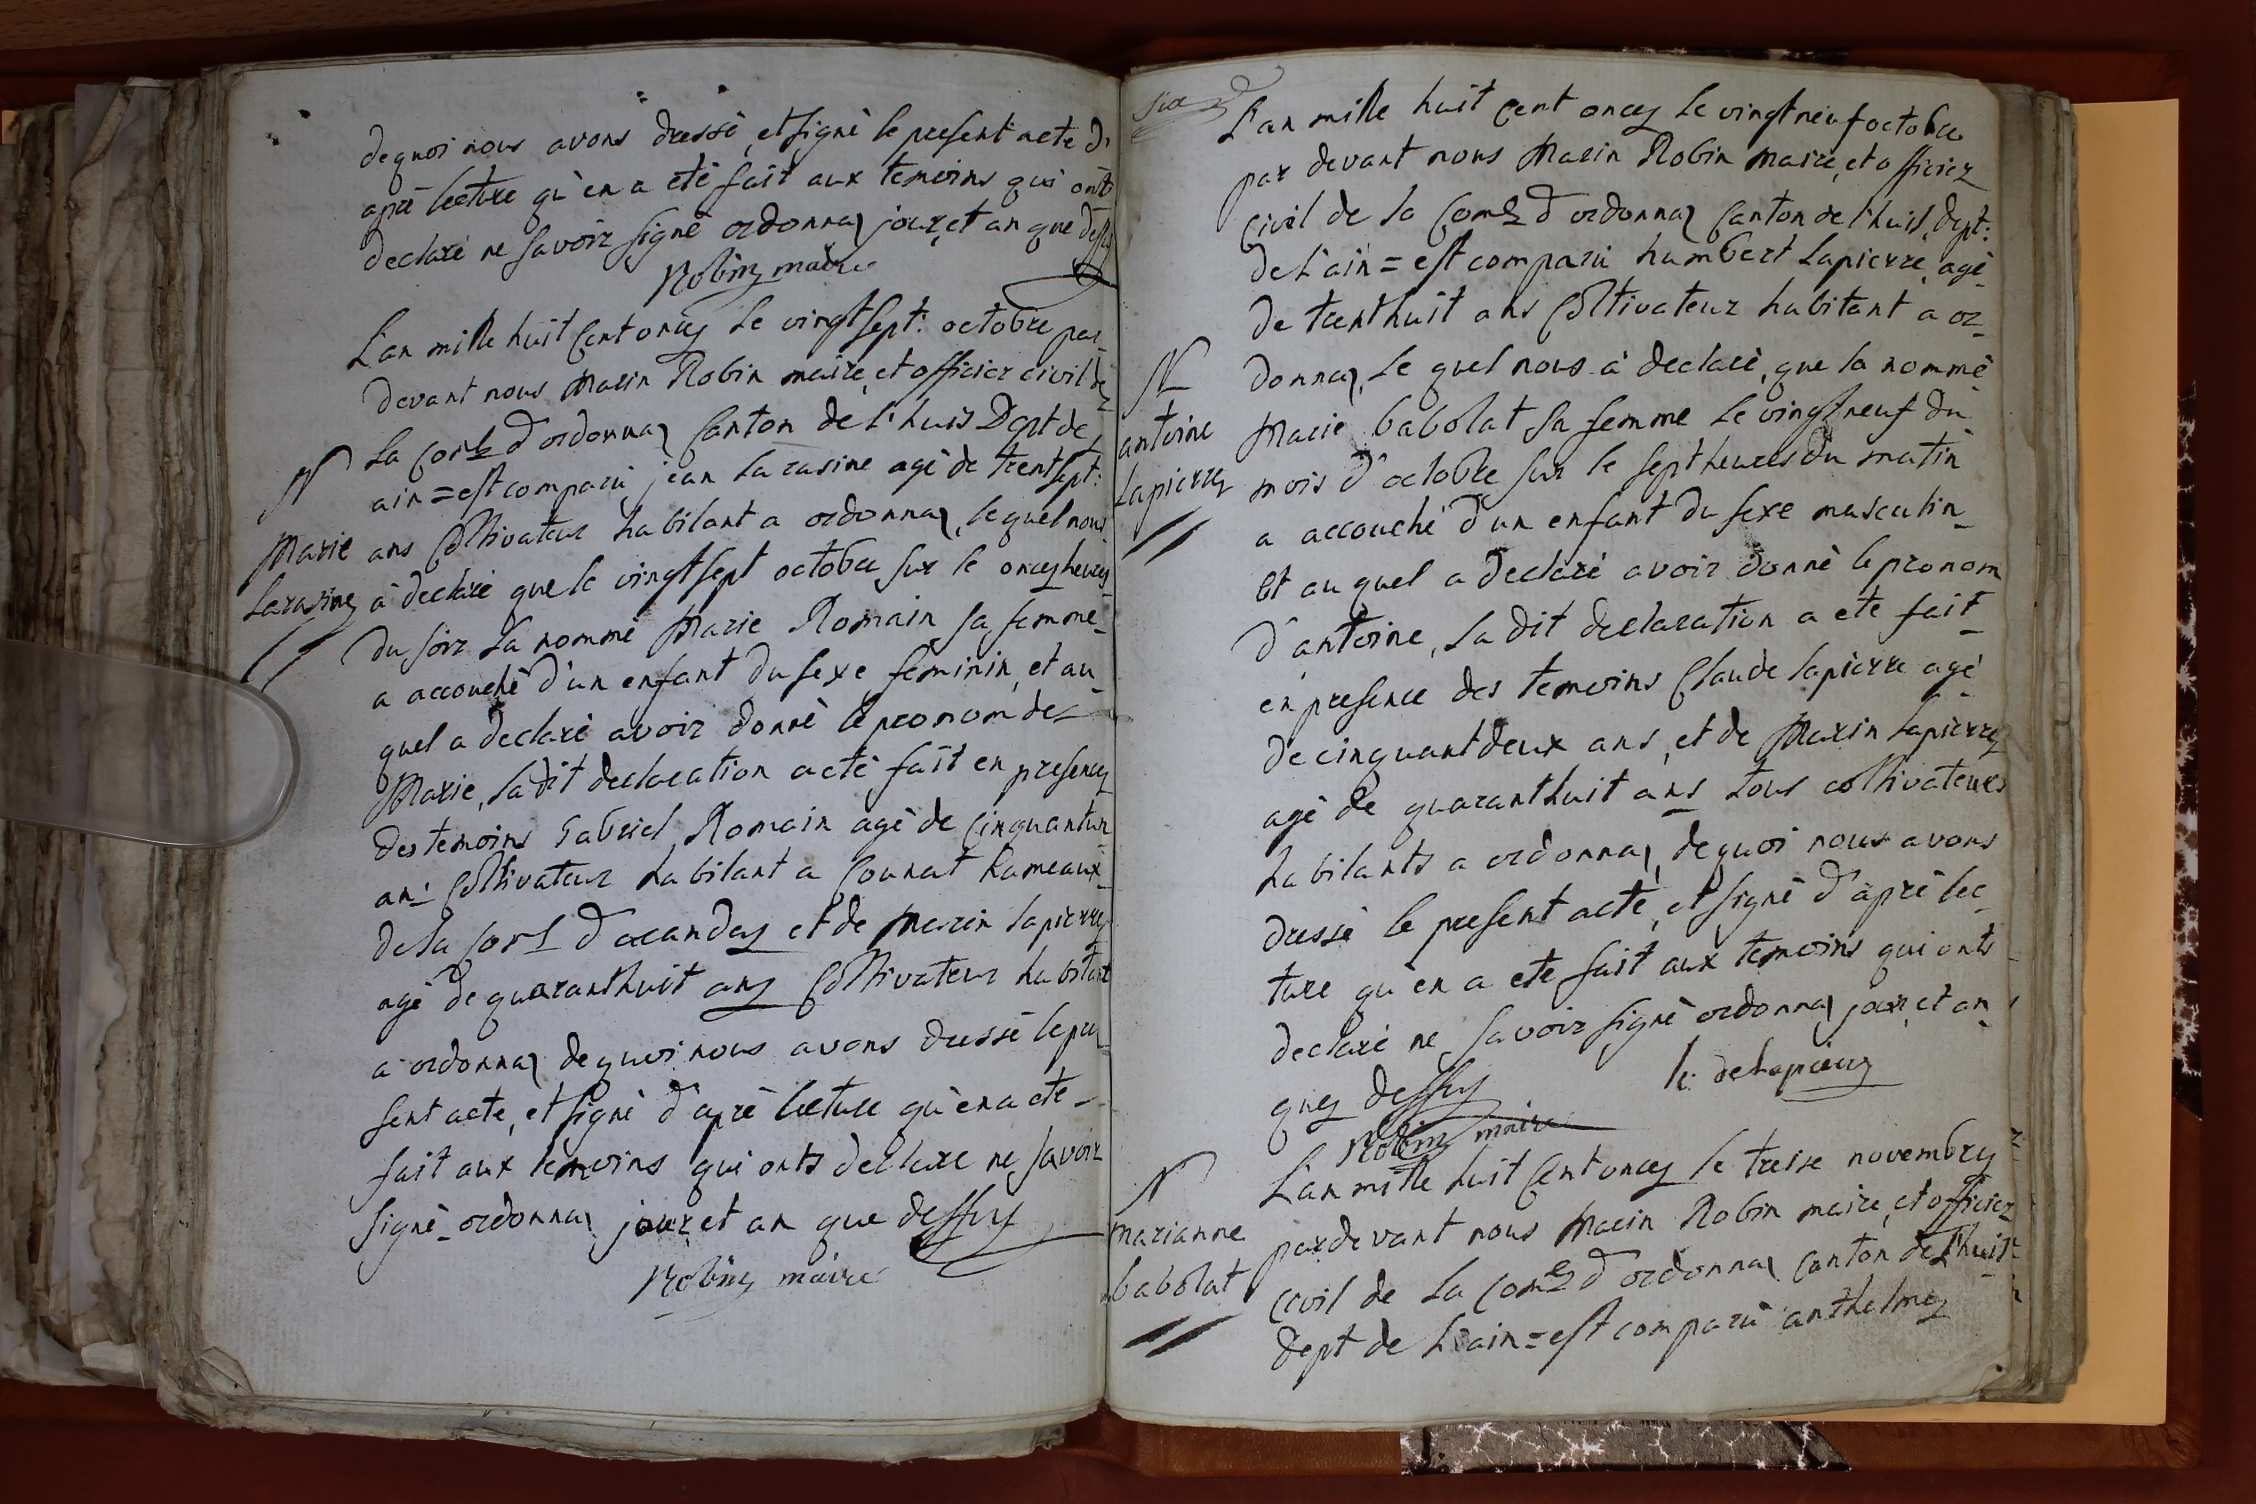 de quoi nous avons dressé, et signé le present acte d'
apré lecture qu'en a eté fait aux temoins qui ont
declaré ne savoir signé ordonnaz jour, et an que dessus
Robin maire
L'an mille huit cent onze le vingt sept: octobre par
devant nous Marin Robin maire, et officier civil de
la Come d'ordonnaz Canton de l'huis Dept de
ain = est comparu jean larasine agé de trent sept:
ans Coltivateur habitant a ordonnaz, le quel nous
à declaré que le vingt sept octobre sur le onze heures
du soir la nommé Marie Romain sa femme
a accouché d'un enfant du sexe feminin, et au
quel a declaré avoir donné le pronom de
Marie, ladit declaration a eté fait en presence
des temoins Gabriel Romain agé de Cinquantun
an: Coltivateur habitant a hameaux
de la Come d'arandas et de Marin lapierre
agé de quaranthuit ans Coltivateur habitant
a ordonnaz de quoi nous avons dressé le pre
sent acte, et signé d'apré lecture qu'en a eté
fait aux temoins qui onts declaré ne savoir
signé ordonnaz jour, et an que dessus
Robin maire
N
Marie
Larasine
six
L'an mille huit cent onze le vingt neuf octobre
par devant nous Marin Robin maire, et officier
Civil de la Come d'ordonnaz Canton de l'huis, dept:
de L'ain = est comparu humbert Lapierre, agé
de trenthuit ans Coltivateur habitant a or
donnaz, le quel nous à declaré, que la nommé
Marie babolat sa femme le vingt neuf du
mois d'octobre sur le sept heures du matin
a accouché d'un enfant du sexe masculin
et au quel a declaré avoir donné le pronom
d'antoine, ladit declaration a ete fait
en presence des temoins Claude lapierre agé
de cinquantdeux ans, et de Marin lapierre
agé de quaranthuit ans tous coltivateurs
habitants a ordonnaz, de quoi nous avons
dressé le present acte, et signé d'apré lec
ture qu'en a ete fait aux temoins qui onts
declaré ne savoir signé ordonnaz jour, et an
que dessus
delapierre
Robin maire
N
antoine
Lapierre
L'an mille huit Cent onze le treise novembre
pardevant nous Marin Robin maire, et officier
civil de la Come d'ordonnaz Canton de l'huis
dept de L'ain = est comparu anthelme
N
marianne
babolat